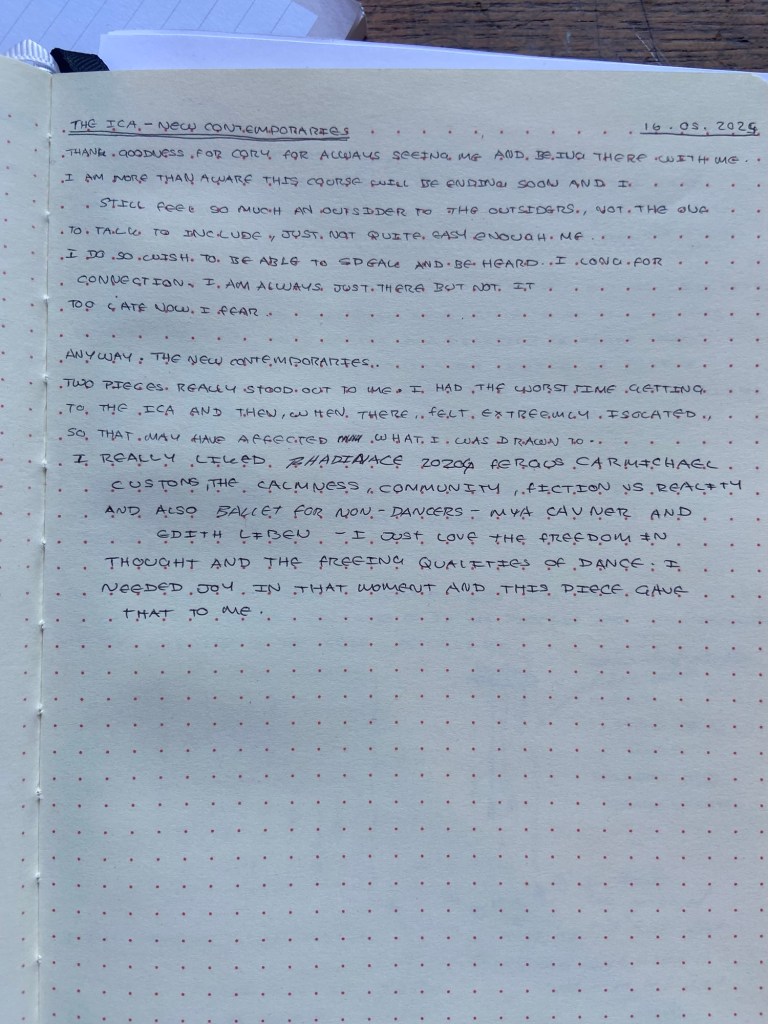 THE ICA - NEW CONTEMPORARIES 16.03.2024
THANK GOODNESS FOR CORY FOR ALWAYS SEEING ME AND BEING THERE WITH ME.
I AM MORE THAN AWARE THIS COURSE WILL BE ENDING SOON AND I
STILL FEEL SO MUCH AN OUTSIDDER TO THE OUTSIDERS, NOT THE ONE
TO TALK TO INCLUDE, JUST NOT QUITE EASY ENOUGH ME.
I DO SO WISH TO BE ABLE TO SPEAK AND BE HEARD. I LONG FOR
CONNECTION, I AM ALWAYS JUST THERE BUT NOT. IT
TOO LATE NOW I FEAR.
ANYWAY: THE NEW CONTEMPORARIES.
TWO PIECES REALLY STOOD OUT TO ME. I HAD THE WORST TIME GETTING
TO THE ICA AND THEN, WHEN THERE, FELT EXTREEMLY ISOLATED,
SO THAT MAY HAVE AFFECTED WHAT I WAS DRAWN TO.
I REALLY LIKED RHADINACE 2020 FERGUS CARMICHAEL
CUSTOMS, THE CALMNESS, COMMUNITY, FICTION VS REALITY
AND ALSO BALLET FOR NON-DANCERS - MYA CAVNER AND
EDITH LIBEN - I JUST LOVE THE FREEDOM IN
THOUGHT AND THE FREEING QUALITIES OF DANCE: I
NEEDED JOY IN THAT MOMENT AND THIS PIECE GAVE
THAT TO ME.